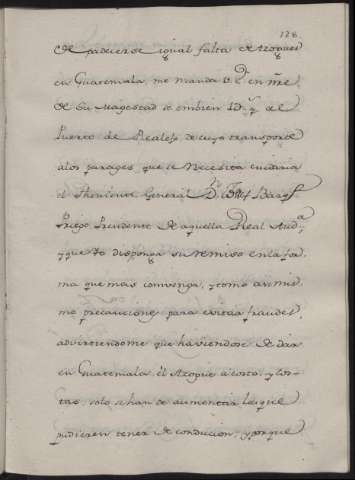 128.
de padecerse igual falta de Azogues
en Guatemala, me manda V.E. en nre.
de Su Magestad se embien 1D q.s del
Puerto de Realejo de cuyo transporte
a los parages que se Necesita cuidaria
el Theniente General Dn.
Priego Presidente de aquella Real Aud.a
y que Yo disponga su remiso en la for
ma que mas convenga, y tome asimis
mo precauciones para evitar fraudes,
advirtiendome que haviendose de dar
en Guatemala el Azogue a costo, y cos=
tas, solo se han de aumentar las que
pudieren tener de conducion, y porque